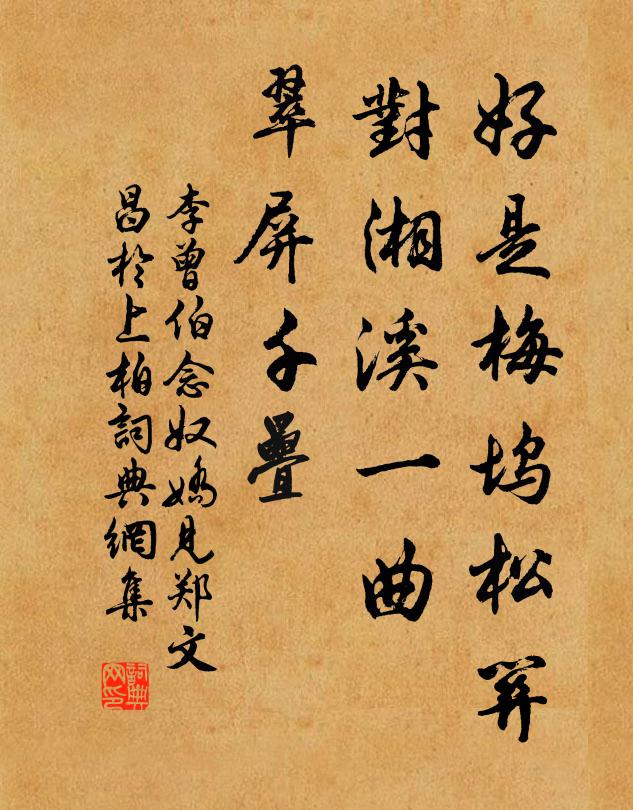 好是梅塢松關
對湘溪一曲
翠屏千疊
李曾伯念奴嬌見郑文
昌於上柏詞典網集
詞典
网印